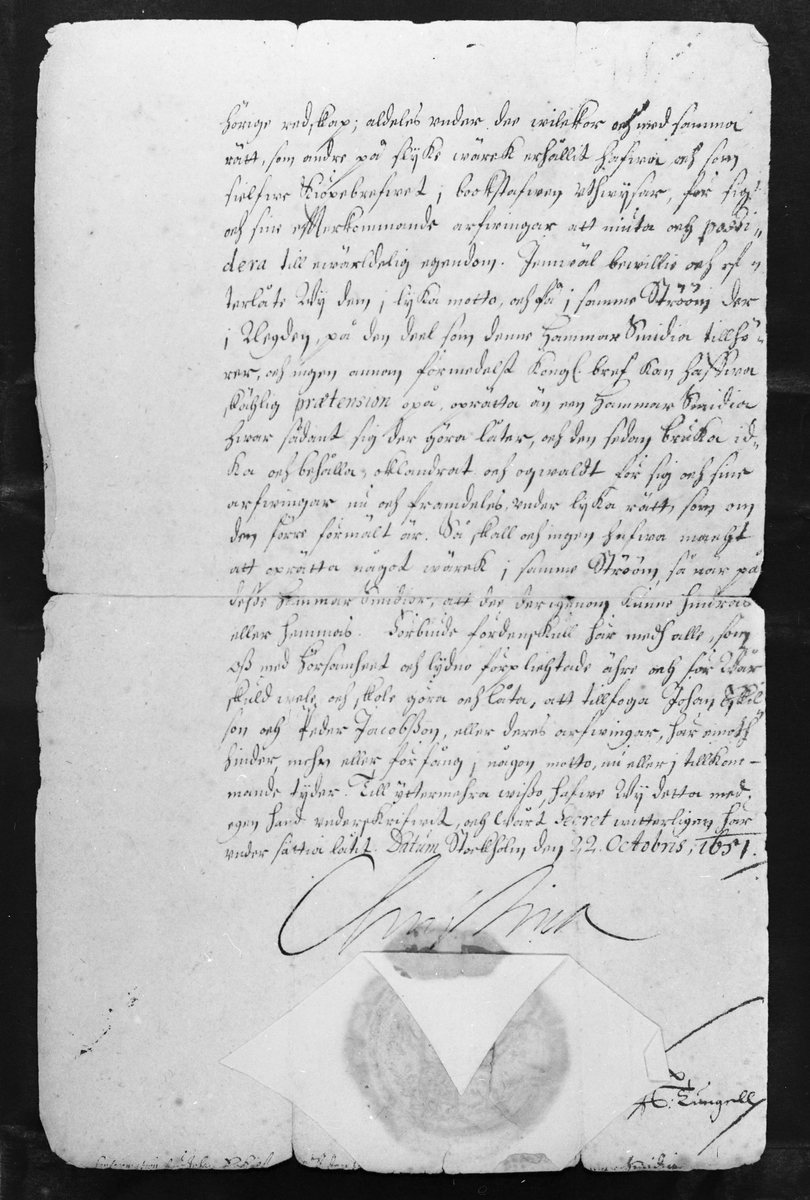 hörige redskap; aldeles under dee wilckor och med samma
rätt, som andre på slyke wärck erhållit hafwa och som
sielfwe Kiöpebrefwet i bookstafwen uthwysar, för sig
och sine efterkommande arfwingar att niuta och possi-
dera till ewärdelig egendom. Jemwäl bewillie och ef-
terlåte Wij dem i lyka motto, och få i samme Ström der
i Negden, på den deel som denne Hammar Smidia tillhö-
rer, och ingen annan förmedelst Kongl. bref kan haffwa
skählig prætension opå, oprätta än een Hammar Smidia
hwar sådant sig der göra låter, och den sedan bruka id-
ka och behålla oklandrat och oqwaldt för sig och sine
arfwingar nu och framdeles, under lyka rätt som om
den förre förmält är. Så skall och ingen hafwa macht
att oprätta något wärck i samme Ström, så när på
desse Hammar Smidior, att dee derigenom kunne hindras
eller hemmas. Förbiude fördenskull här medh alle, som
Oss med hörsamheet och lydno förplichtade ähre och för Wår
skuld wele och skole göra och låta, att tillfoga Johan Eskil-
son och Peder Jacobsson, eller deres arfwingar, här emoth
hinder, mehn eller förfång i någon motto, nu eller i tillkom-
mande tyder. Till yttermehra wisso, hafwe Wij detta med
egen hand underskrifwit, och Wårt Secret witterligen här
under sättia låtit. Datum Stockholm den 22 Octobris, 1651.
Christina
A: Gungell